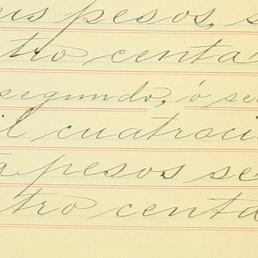 eis pesos, s
tro centa
segundo, ó se
il cuatroci
a pesos se
tro centa